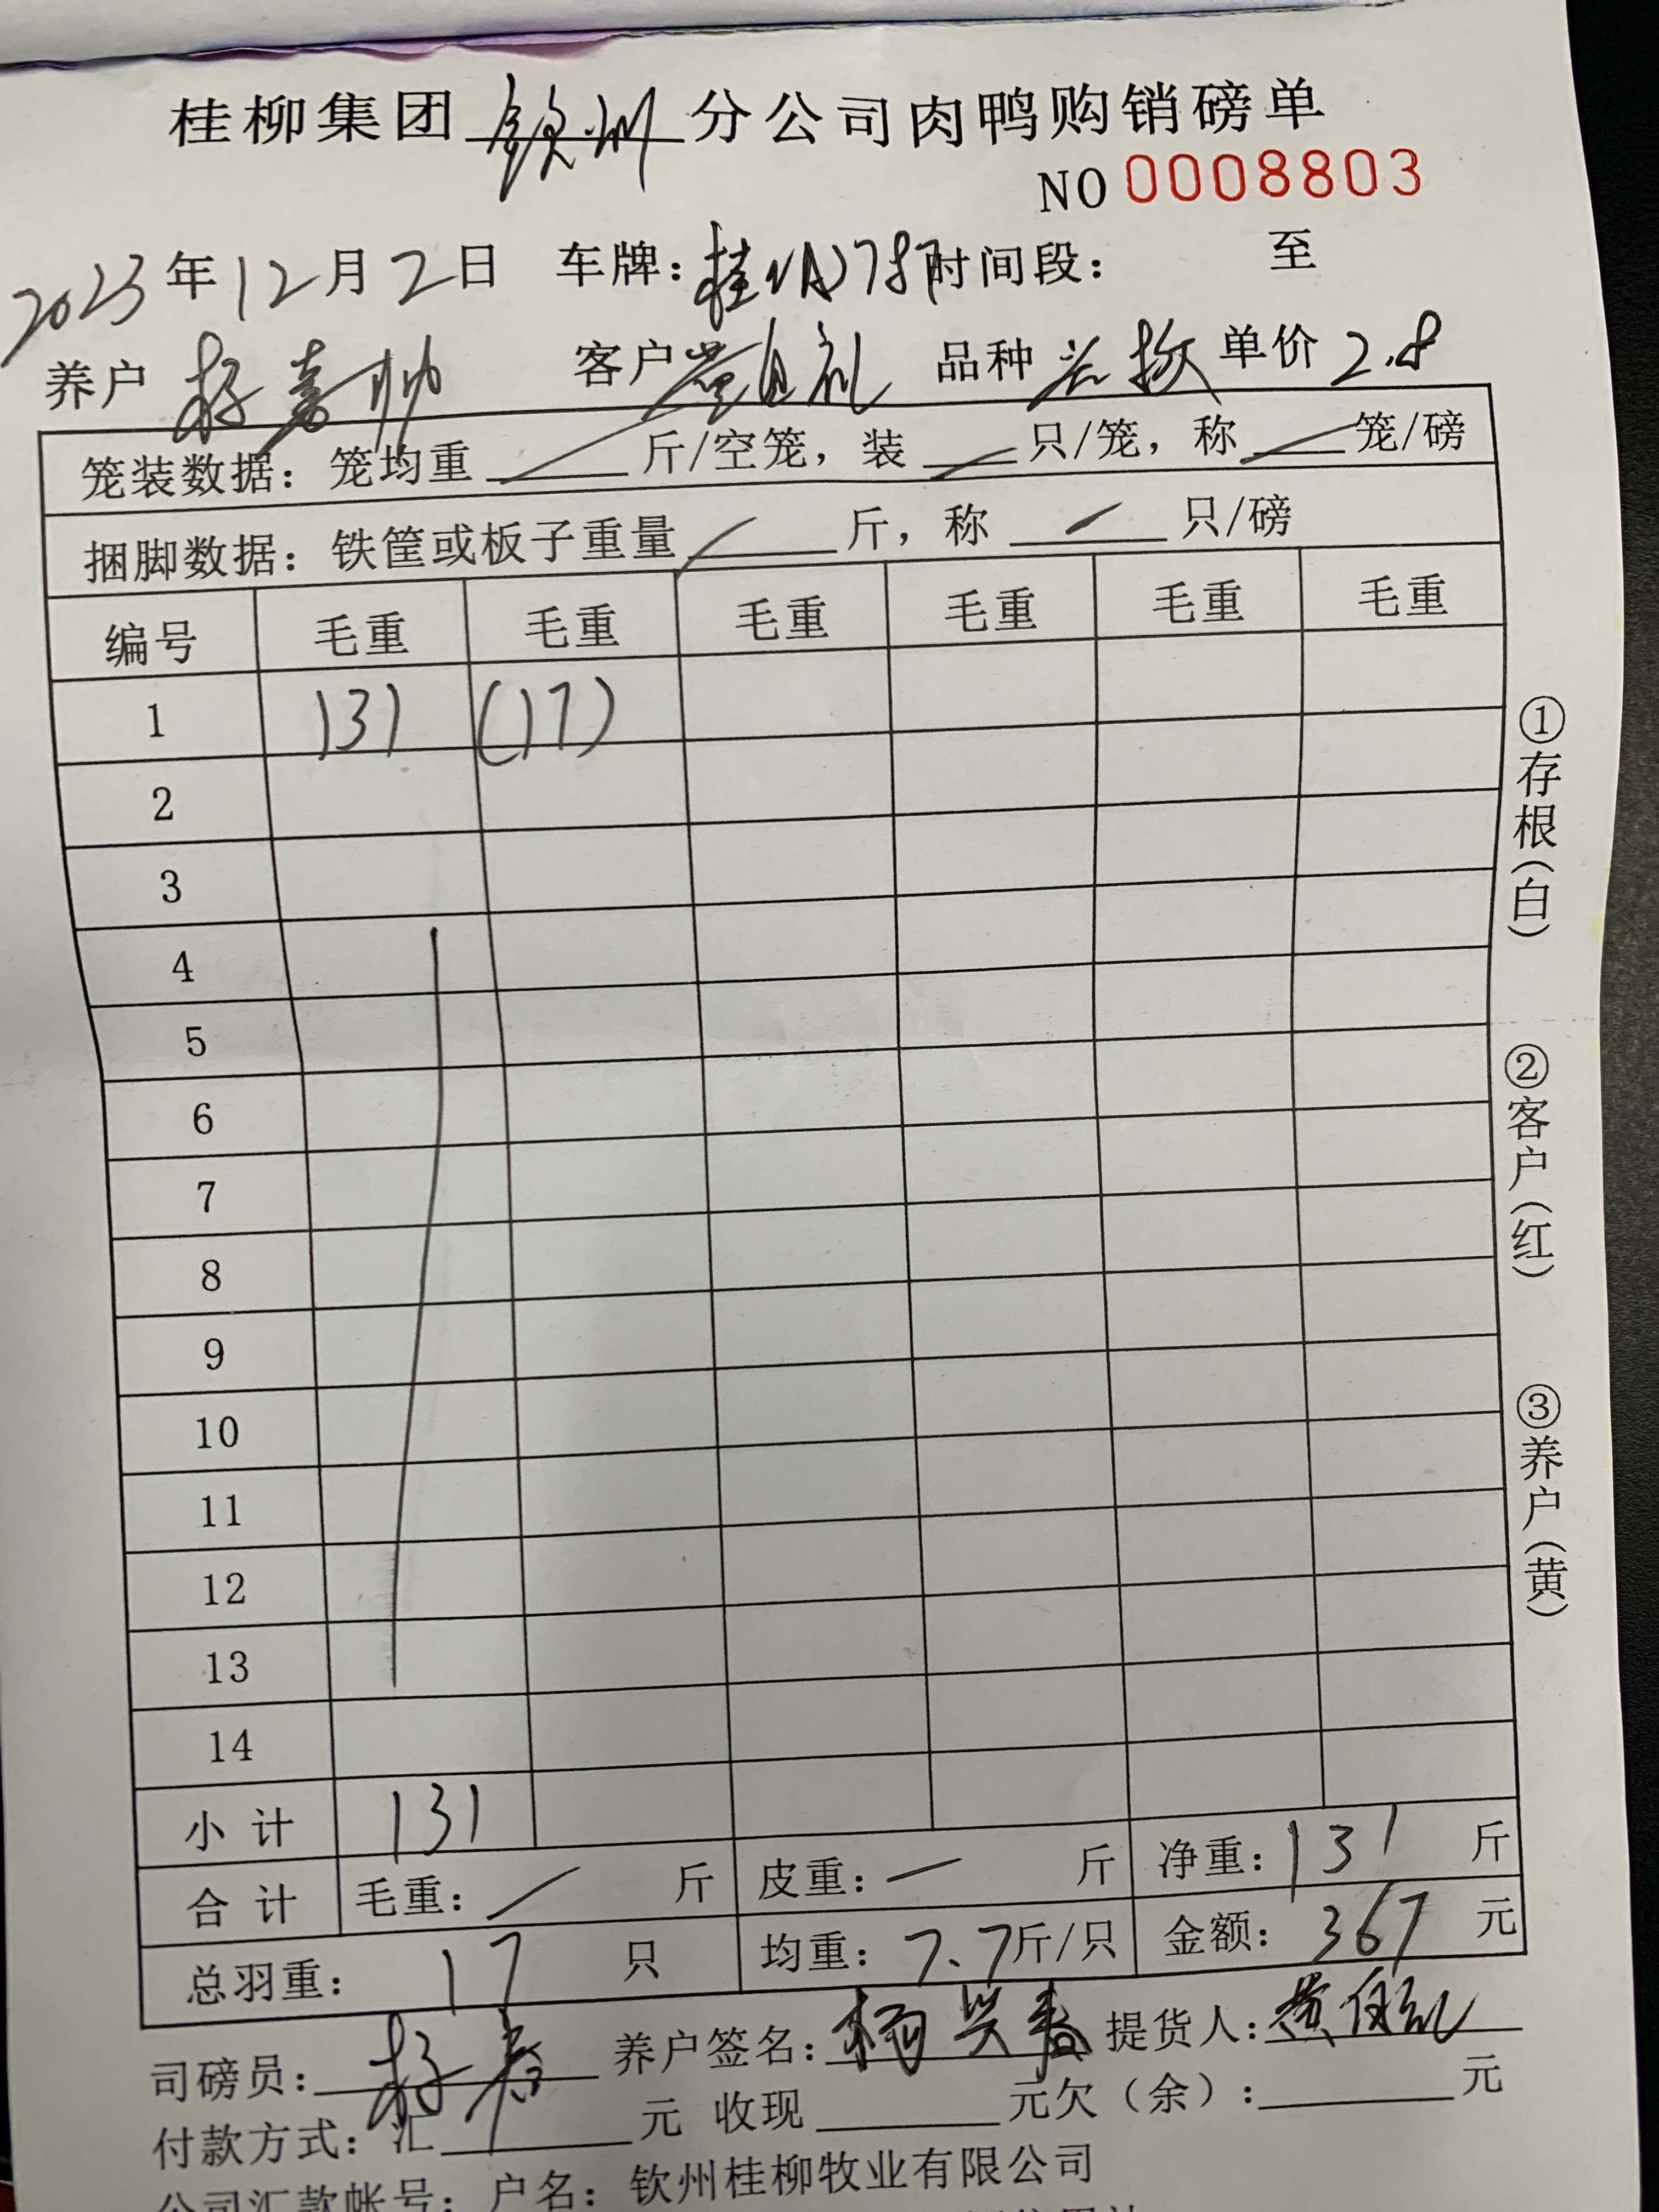 桂柳集团钦州分公司肉鸭购销磅单
NO 0008803
2023年12月2日 车牌： 时间段： 至
养户 客户 品种 单价 2.8
笼装数据：笼均重 斤/空笼，装 只/笼，称 笼/磅
捆脚数据：铁筐或板子重量 斤，称 只/磅
编号 毛重 毛重 毛重 毛重 毛重 毛重
1 131 (17)
2
3
4
5
6
7
8
9
10
11
12
13
14
小计 131
合计 毛重： 斤 皮重： 斤 净重：131 斤
总羽重：17 只 均重：7.7斤/只 金额：367 元
司磅员： 养户签名： 提货人：
付款方式：汇 元 收现 元欠（余）： 元
公司汇款帐号：户名：钦州桂柳牧业有限公司
①存根（白）
②客户（红）
③养户（黄）